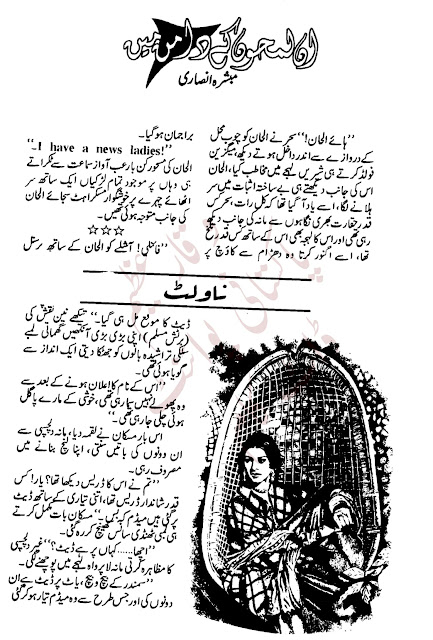 ان لمحوں کے دامن میں
مبشرہ انصاری
"ہائے الحان!" سحر نے الحان کو چوب محل
کے دروازے سے اندر داخل ہوتے دیکھ، میگزین
فولڈ کرتے ہی شیریں لہجے میں مخاطب کیا، الحان
اس کی جانب دیکھتے ہی بے ساختہ اثبات میں سر
ہلانے لگا، اسے یاد آ گیا تھا کہ کل رات، سحر کس
قدر حقارت بھری نگاہوں سے مانہ کی جانب دیکھ
رہی تھی اور اس کا لہجہ بھی اس کے ساتھ کس قدر تلخ
تھا، اسے اگنور کرتا وہ دھڑام سے کاؤچ پر
براجمان ہو گیا۔
"I have a news ladies!"۔
الحان کی مسحور کن بارعب آواز سماعت سے ٹکراتے
ہی وہاں پر موجود تمام لڑکیاں ایک ساتھ سر
اٹھائے چہرے پر خوشگوار مسکراہٹ سجائے الحان
کی جانب متوجہ ہوئی تھیں۔
☆☆☆
"فائنلی! آشلے کو الحان کے ساتھ پرسنل
ناولٹ
ڈیٹ کا موقع مل ہی گیا۔" تیکھے نین نقش کی
(برٹش مسلم) اپنی بڑی بڑی آنکھیں گھماتی لمبے
سلکی تراشیدہ بالوں کو جھٹکا دیتی ایک انداز سے
گویا ہوئی تھی۔
"اس کے نام کا اعلان ہونے کے بعد سے
وہ پھولے نہیں سما رہی تھی، خوشی کے مارے پاگل
ہوئی چلی جا رہی تھی۔"
اس بار مسکان نے لقمہ دیا، مانہ دلچسپی سے
ان دونوں کی باتیں سنتی، اپنا لنچ بنانے میں
مصروف رہی۔
"تم نے اس کا ڈریس دیکھا تھا؟ یار! کس
قدر شاندار ڈریس تھا، اتنی تیاری کے ساتھ ڈیٹ
پر گئی ہیں میڈم کہ بس!" مسکان بات مکمل کرتے
ہی لمبی ٹھنڈی سانس کھینچ کر رہ گئی۔
"اچھا.....کہاں پر ہے ڈیٹ؟" غیر دلچسپی
کا مظاہرہ کرتی مانہ لاپرواہ لہجے میں پوچھنے لگی۔
"سمندر کے بیچ و بیچ، یاٹ پر ڈیٹ ہے ان
دونوں کی اور جس طرح سے وہ میڈم تیار ہو کر گئی